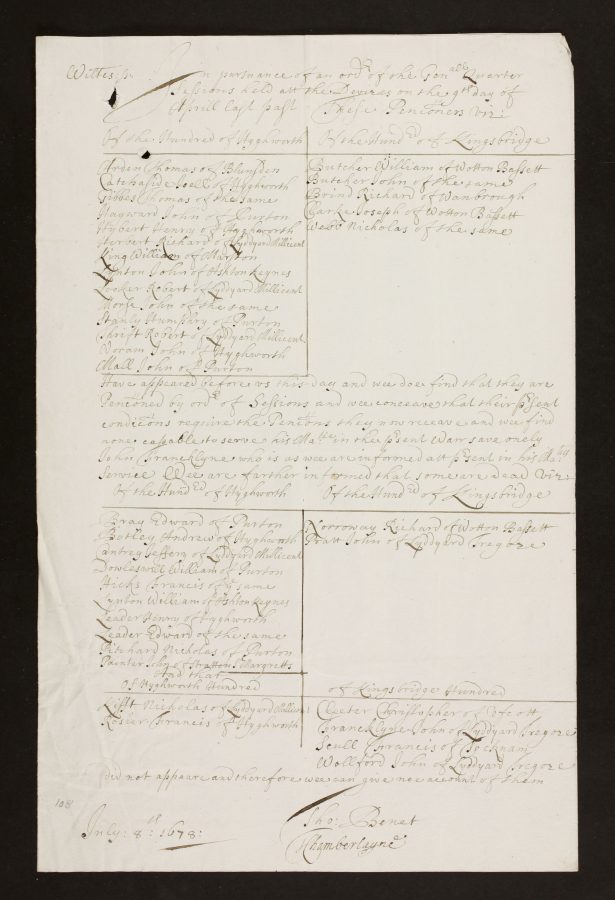 Wiltes ss. In pursuance of an ordr of the Genalle Quarter
Sessions held att the Devizes on the 9th day of
Aprill last past These Pencõners viz:
Of the Hundred of Hyghworth
Arden Thomas of Blunsden
Catchaside Noell of Hyghworth
Gibbes Thomas of the same
Hayward John of Purton
Hybert Henry of Hyghworth
Herbert Richard of Lyddyard Millicent
King William of Marston
Lynton John of Ashton Keynes
Looker Robert of Lyddyard Millicent
Morse John of the same
Stanly Humphry of Purton
Shrift Robert of Lyddyard Millicent
Woram John of Hyghworth
Mall John of Purton
Of the Hundrd of Kingsbridge
Butcher William of Wotton Bassett
Butcher John of the same
Brind Richard of Wanbrough
Clarke Joseph of Wotton Bassett
Webb Nicholas of the same
Have appeared before us this day and wee doe find that they are
Pencõned by ordr of Sessions and wee conceave that their psent
condicõns require the Pencõns they now receave and wee find
none capable to serve his Matie in the psent Warr save onely
John Francklyne who is as wee are informed att psent in his Matys
Service Wee are farther informed that some are dead viz:
Of the Hundrd of Hyghworth
Bray Edward of Purton
Botley Andrew of Hyghworth
Cantrey Jeffery of Lyddyrd Millicent
Dowleswell William of Purton
Hicks Francis of ye same
Lynton William of Ashton Keynes
Leader Henry of Hyghworth
Leader Edward of the same
Pitchard Nicholas of Purton
Painter John of Stratton St Margretts
Of the Hundrd of Kingsbridge
Norroway Richard of Wotton Bassett
Pratt John of Lyddyard Tregoze
And that
Of Hyghworth Hundred
Nicholas of Lyddyard Millicent
Rosier Francis of Hyghworth
of Kingsbridge Hundred
Cleeter Christopher of
Francklyne John of Lyddyard Tregoze
Scull Francis of Tocknam
Wollford John of Lyddyard Tregoze
did not appeare and therefore wee can give noe account of them
108
July: 8th: 1678:
Tho: Benet
Chamberlayne